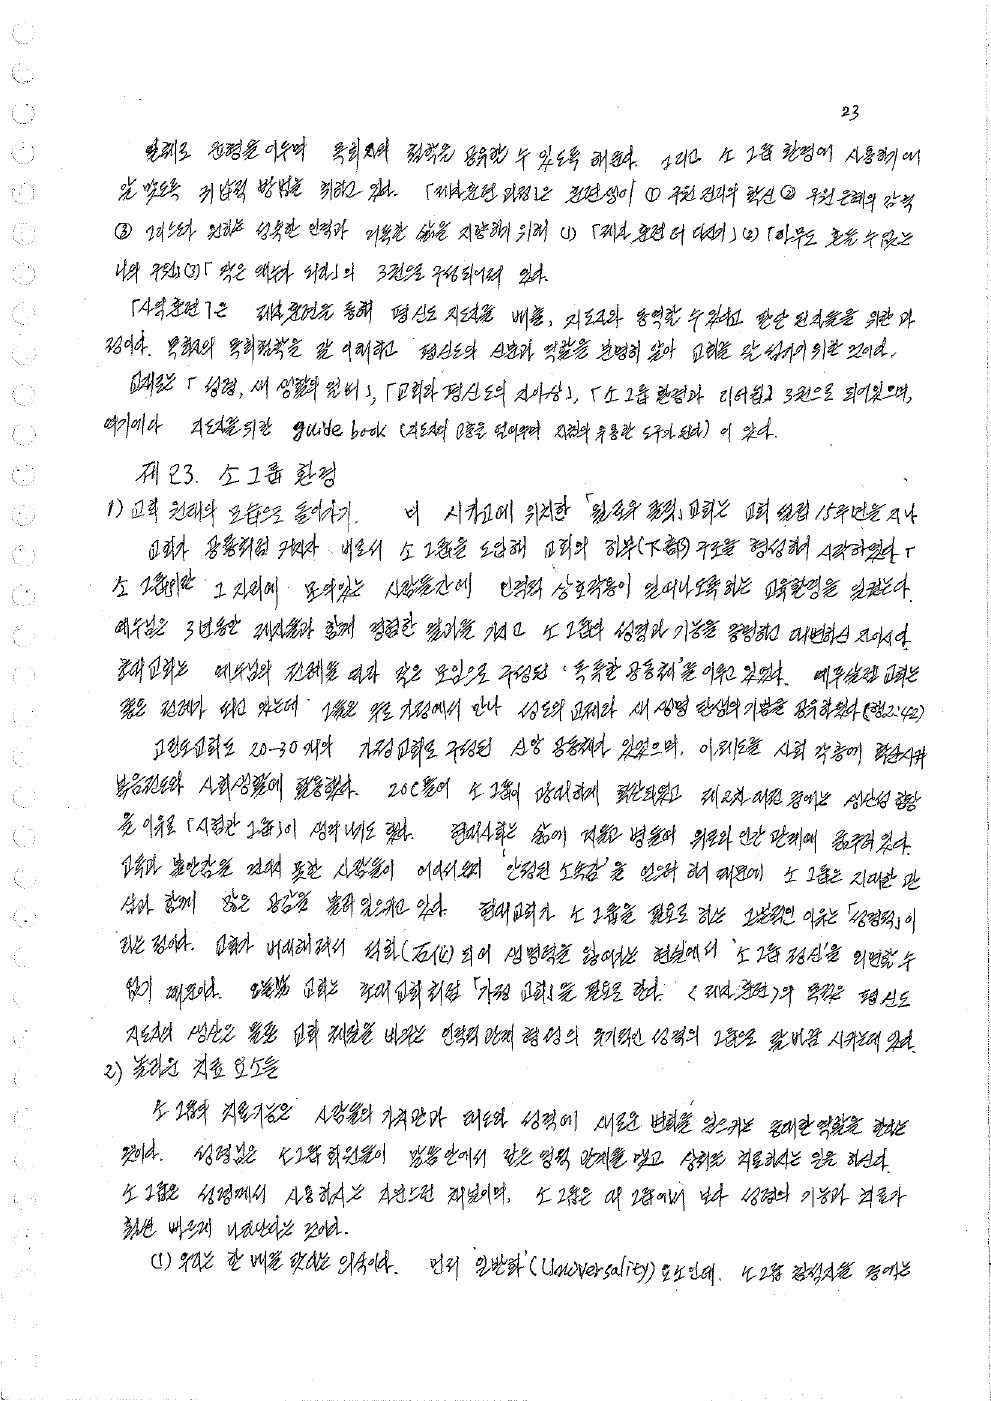 23
원형을 이루며 목회자의 철학을 공유할 수 있도록 해준다. 그리고 소그룹 환경에 사용하기에
알맞도록 귀납적 방법을 취하고 있다. 「제자훈련과정」은 훈련생이 ① 구원진리의 확신 ② 구원은혜의 감격
③ 그리스도가 원하는 성숙한 인격과 거룩한 삶을 지향하기 위해 (1) 「제자훈련 터다지기」 (2) 「아무도 흔들 수 없는
나의 구원」 (3) 「작은 예수가 되라」의 3권으로 구성되어져 있다.
「사역훈련」은 제자훈련을 통해 평신도 지도자를 배출, 지도자와 동역할 수 있다고 판단된 자들을 위한 과
정이다. 목회자의 목회철학을 잘 이해하고 평신도의 신분과 역할을 분명히 알아 교회를 잘 섬기기 위한 것이다.
교재로는 「성령, 새 생활의 열쇠」, 「교회와 평신도의 자아상」, 「소그룹 환경과 리더쉽」 3권으로 되어있으며,
여기에다 지도자를 위한 guide book (지도자의 수고를 덜어주며 시간의 유용한 도구가 된다)이 있다.
제23. 소그룹 환경
1) 교회 원래의 모습으로 돌아가기. 미 시카고에 위치한 「윌로우 크릭」 교회는 교회 설립 15주년을 지나
교회가 공룡처럼 커지자 비로서 소그룹을 도입해 교회의 하부(下部) 구조를 형성하여 시작하였다 「
소그룹」이란 그 자리에 모여있는 사람들간에 인격적 상호작용이 일어나도록 하는 교육환경을 일컫는다.
예수님은 3년동안 제자들과 함께 경험한 열기를 가지고 소그룹의 성격과 기능을 증명하고 대변하신 자이시다.
초대교회는 예수님의 전례를 따라 작은 모임으로 구성된 '독특한 공동체'를 이루고 있었다. 예루살렘 교회는
좋은 전례가 되고 있는데 그들은 주로 가정에서 만나 성도의 교제와 새 생명 탄생의 기쁨을 공유하였다 (행2:42)
고린도교회도 20-30개의 가정교회로 구성된 신앙 공동체가 있었으며, 이 제도를 사회 각층에 확산시켜
복음전도와 사회생활에 활용했다. 20C들어 소그룹이 광대하게 확산되었고 제2차 대전 중에는 생산성 향상
을 이유로 「시험관 그룹」이 생겨나기도 했다. 현대사회는 삶에 지들고 병들어 위로와 인간관계에 굶주려 있다.
고독과 불안감을 견디지 못한 사람들이 여러 부류의 '안정된 소속감'을 얻으려 하기 때문에 소그룹은 지대한 관
심과 함께 많은 공감을 불러 일으키고 있다. 현대교회가 소그룹을 필요로 하는 근본적인 이유는 「성경적」이
라는 점이다. 교회가 비대해져서 석화(石化)되어 생명력을 잃어가는 현실에서 '소그룹 정신'을 외면할 수
없기 때문이다. 오늘날 교회는 초대교회처럼 「가정 교회」를 필요로 한다. <제자훈련>의 목적은 평신도
지도자의 생산은 물론 교회 체질을 바꾸는 인격적 관계 형성의 유기적인 성격의 그룹으로 탈바꿈 시키는데 있다.
2) 놀라운 치료 요소들
소그룹의 치료기능은 사람들의 가치관과 태도와 성격에 새로운 변화를 일으키는 중대한 역할을 한다는
것이다. 성령님은 소그룹 회원들이 말씀 안에서 같은 영적 관계를 맺고 상처를 치료하시는 일을 하신다.
소그룹은 성령께서 사용하시는 자연스런 채널이며, 소그룹은 대그룹에서 보다 성령의 기능과 치료가
훨씬 빠르게 나타난다는 것이다.
(1) 우리는 한 배를 탔다는 의식이다. 먼저 '일반화'(Universality) 요소인데, 소그룹 참석자들 중에는